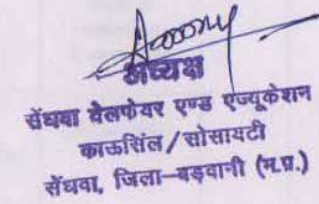 अध्यक्ष
सेंधवा वेलफेयर एण्ड एज्यूकेशन
काऊसिंल/सोसायटी
सेंधवा, जिला-बड़वानी (म.प्र.)